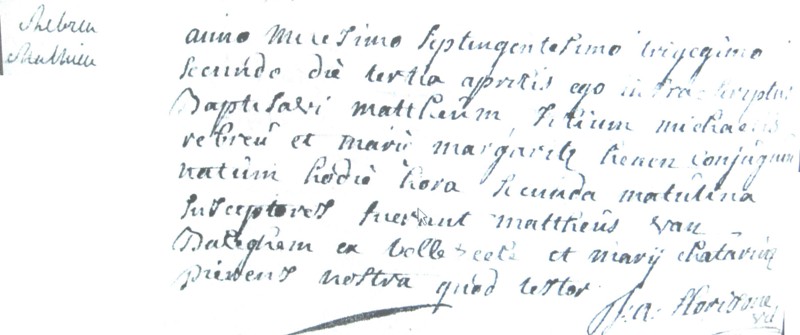 Rebreu
Mathieu
anno millesimo septingentesimo trigegimo
secundo die tertia aprilis ego infrascriptus
Baptisavi mattheum filium michaelis
rebreu et mariæ margaritæ henen conjugum
natum hodiè hora secunda matutina
susceptores fuerunt mattheus van
Baleghem ex et mary chatarina
pievens nostra quod testor